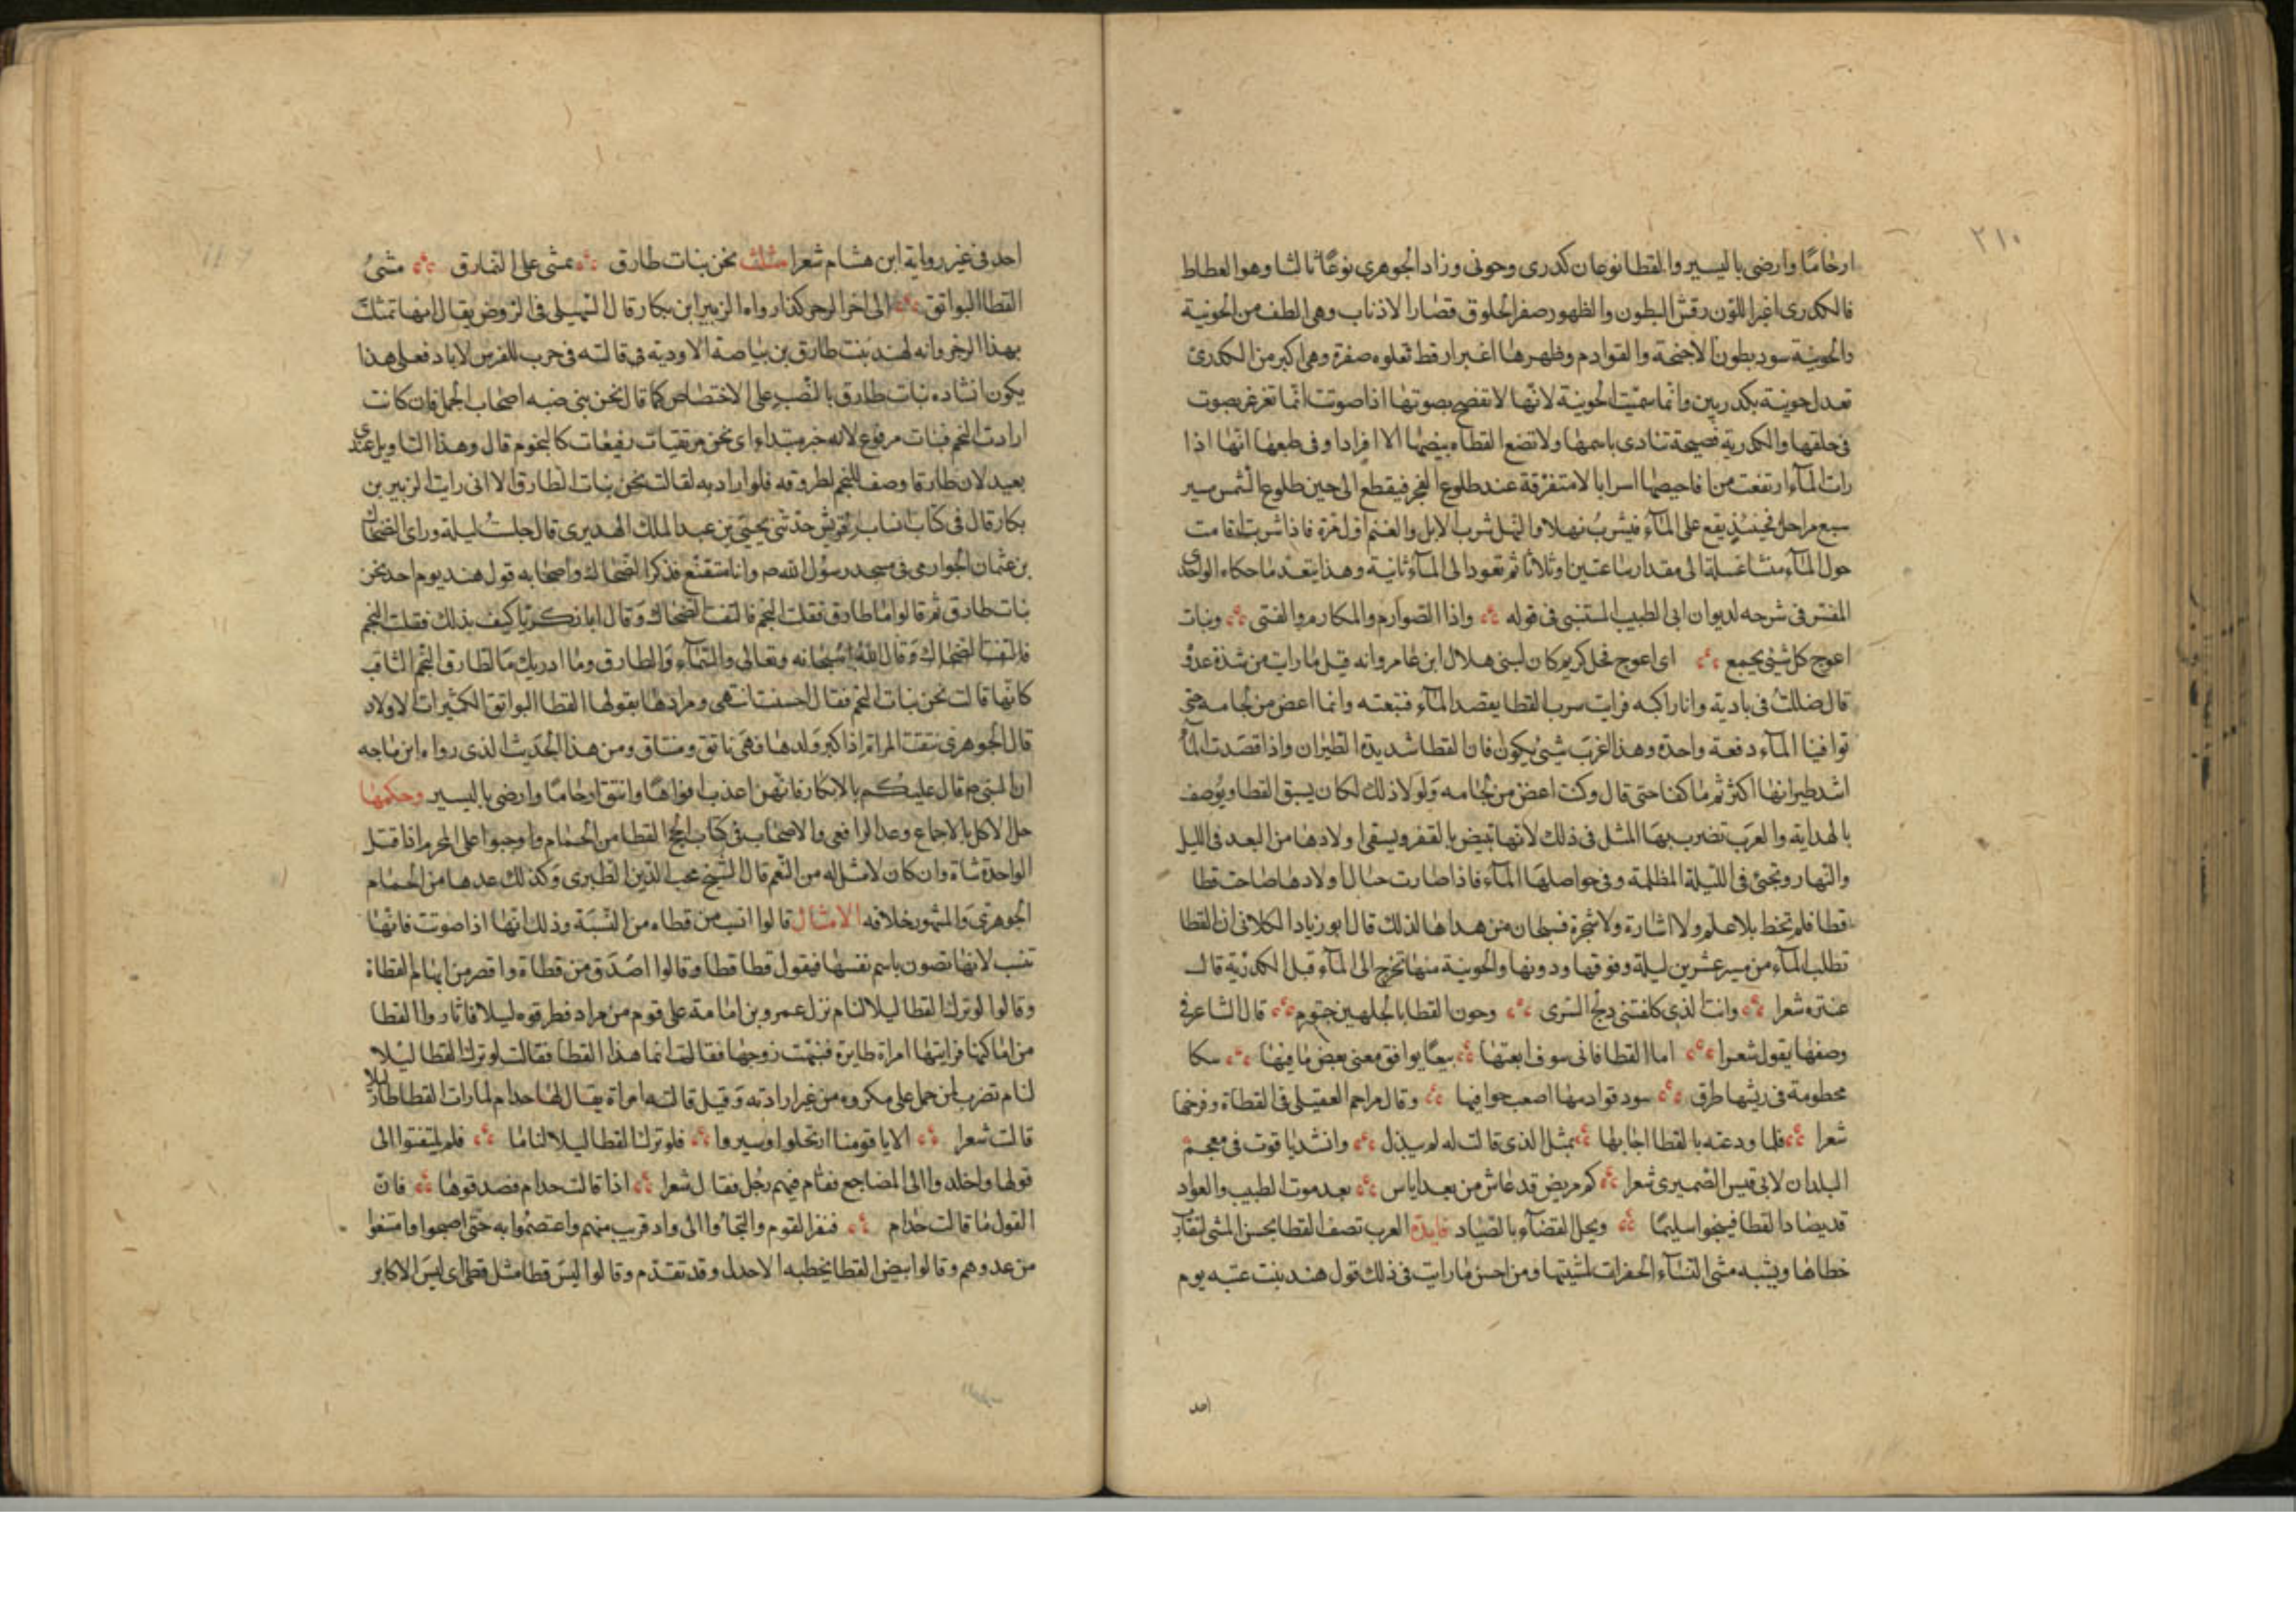 ٢١٠
ارحامًا وارضى باليسير والقطا نوعان كدرى وجونى وزاد الجوهرى نوعًا ثالثا وهو الغطاط
فالكدرى اغبر اللون رقش البطون والظهور صفر الحلوق قصار الاذناب وهى الطف من الجونية
والجونية سود بطون الاجنحة والقوادم وظهرها اغبر ارقط تعلوه صفرة وهى اكبر من الكدرى
تعدل جونية بكدريين وانما سميت الجونية لانها لا تفصح بصوتها اذا صوتت انما تغرغر بصوت
فى حلقها والكدرية فصيحة تنادى باسمها ولا تضع القطاه بيضها الا افرادا وفى طبعها انها اذا
رات المآء ارتفعت من افاحيصها اسرابا لا متفرقة عند طلوع الفجر فيقطع الى حين طلوع الشمس سير
سبع مراحل فحينئذ يقع على المآء فيشرب نهلا والنهل شرب الابل والغنم اول مرة فاذا شربت اقامت
حول المآء متشاغلة الى مقدار ساعتين او ثلاثا ثم تعود الى المآء ثانية وهذا يتعد ما حكاه الواحدى
المفسر فى شرحه لديوان ابى الطيب المتنبى فى قوله واذا الصوارم والمكارم والفتى وبنات
اعوج كل شئ يجمع اى اعوج فحل كريم كان لبنى هلال ابن عامر وانه قيل ما رايت من شدة عدو
قال ضللت فى بادية وانا راكبه فرايت سرب القطا يقصد المآء فتبعته وانما اعض من لجامه حتى
توافينا المآء دفعة واحدة وهذا اغرب شئ يكون فان القطا شديدة الطيران واذا قصدت المآء
اشد طيرانها اكثر ثم ما كفنا حتى قال وكنت اعض من لجامه ولولا ذلك لكان يسبق القطا ويوصف
بالهداية والعرب تضرب بها المثل فى ذلك لانها تبيض بالقفر ويسقى اولادها من البعد فى الليل
والنهار وتجئ فى الليلة المظلمة وفى حواصلها المآء فاذا صارت حيال اولادها صاحت قطا
قطا فلم تخط بلا علم ولا اشارة ولا شجرة فسبحان من هداها لذلك قال ابو زياد الكلابى ان القطا
تطلب المآء من مسير عشرين ليلة وفوقها ودونها والجونية منها تخرج الى المآء قبل الكدرية قال
عنتره شعرا وانت الذى كلفتنى دلج السرى وجون القطا بالجلهين جثوم قال الشاعر فى
وصفها يقول شعرا اما القطا فانى سوف ابعتها بيعًا يوافق معنى بعض ما فيها سكا
مخطومة فى ريشها طرق سود قوادمها اصعب حوافيها وقال مزاحم العقيلى فى القطاة وفرخها
شعرا فلما ودعته بالقطا اجابها بمثل الذى قالت له لم يبذل وانشد ياقوت فى معجم
البلدان لابى قيس الضميرى شعرا كم مريض قد عاش من بعد اياس بعد موت الطبيب والعواد
قد يصاد القطا فينجوا سليمًا ويحل القضآء بالصياد فايدة العرب تصف القطا بحسن المشى لتقارب
خطاها ويشبه مشى النسآء الخفرات لمشيتها ومن احسن ما رايت فى ذلك قول هند بنت عتبه يوم
احد
احد فى غير رواية ابن هشام شعرا مثلث نحن بنات طارق نمشى على النمارق مشىُ
القطا البواتق الى اخر الرجز كذا رواه الزبير ابن بكار قال السهيلى فى الروض يقال انها تمثلت
بهذا الرجز وانه لهند بنت طارق بن بياضة الاودية فى قالته فى حرب للفرس لاياد فعلى هذا
يكون انشاده بنات طارق بالنصب على الاختصاص كما قال نحن بنى ضبه اصحاب الجمل فان كانت
ارادت النجم فبنات مرفوع لانه خبر مبتداء اى نحن مرتقيات رفيعات كالنجوم قال وهذا التاويل عندى
بعيد لان طارقا وصف للنجم لطروقه فلو اراد به لقالت نحن بنات الطارق الا انى رايت الزبير بن
بكار قال فى كتاب انساب قريش حدثنى يحيى بن عبد الملك الهديرى قال جلست ليلة وراى الضحاك
بن عثمان الجوارمى فى مسجد رسول الله ص وانا متقنع فذكر الضحاك واصحابه قول هند يوم احد نحن
بنات طارق ثم قالوا ما طارق فقلت النجم فالتفت الضحاك وقال ابا زكريا كيف بذلك فقلت النجم
فالتفت الضحاك وقال الله سبحانه وتعالى والسمآء والطارق وما ادريك ما الطارق النجم الثاقب
كانها قالت نحن بنات النجم فقال احسنت انتهى ومرادها بقولها القطا البواتق الكثيرات الاولاد
قال الجوهرى نتقت المراة اذا كبر ولدها فهى ناتق ومنتاق ومن هذا الحديث الذى رواه ابن ماجه
ان النبى ص قال عليكم بالابكار فانهن اعذب افواهًا وانتق ارحامًا وارضى باليسير وحكمها
حل الاكل بالاجماع وعد الرافعى والاصحاب فى كتاب الحج القطا من الحمام واوجبوا على المحرم اذا قتل
الواحدة شاة وان كان لا مثل له من النعم قال الشيخ محب الدين الطبرى وكذلك عدها من الحمام
الجوهرى والمشهور خلافه الامثال قالوا انسب من قطاه من النسبة وذلك انها اذا صوتت فانها
تنسب لانها تصون باسم نفسها فيقول قطا قطا وقالوا اصدق من قطاة واقصر من ابهام القطاة
وقالوا لو ترك القطا ليلا لنام نزل عمرو بن امامة على قوم من مراد فطرقوه ليلا فاثاروا القطا
من اماكنها فرايتها امراة طايرة فنبهت زوجها فقالت انما هذا القطا فقالت لو ترك القطا ليلا
لنام تضرب لمن حمل على مكروه من غير ارادته وقيل قالته امراة يقال لها حدام لما رات القطا طار ليلا
قالت شعرا الا يا قومنا ارتحلوا وسيروا فلو ترك القطا ليلا لناما فلم يلتفتوا الى
قولها واخلدوا الى المضاجع فقام فيهم رجل فقال شعرا اذا قالت حدام فصدقوها فان
القول ما قالت حذام فنفر القوم والتجاوا الى واد قريب منهم واعتصموا به حتى اصبحوا وامتنعوا
من عدوهم وقالوا بيض القطا يحطبه الاجدل وقد تقدم وقالوا ليس قطا مثل قطى اى ليس الاكابر